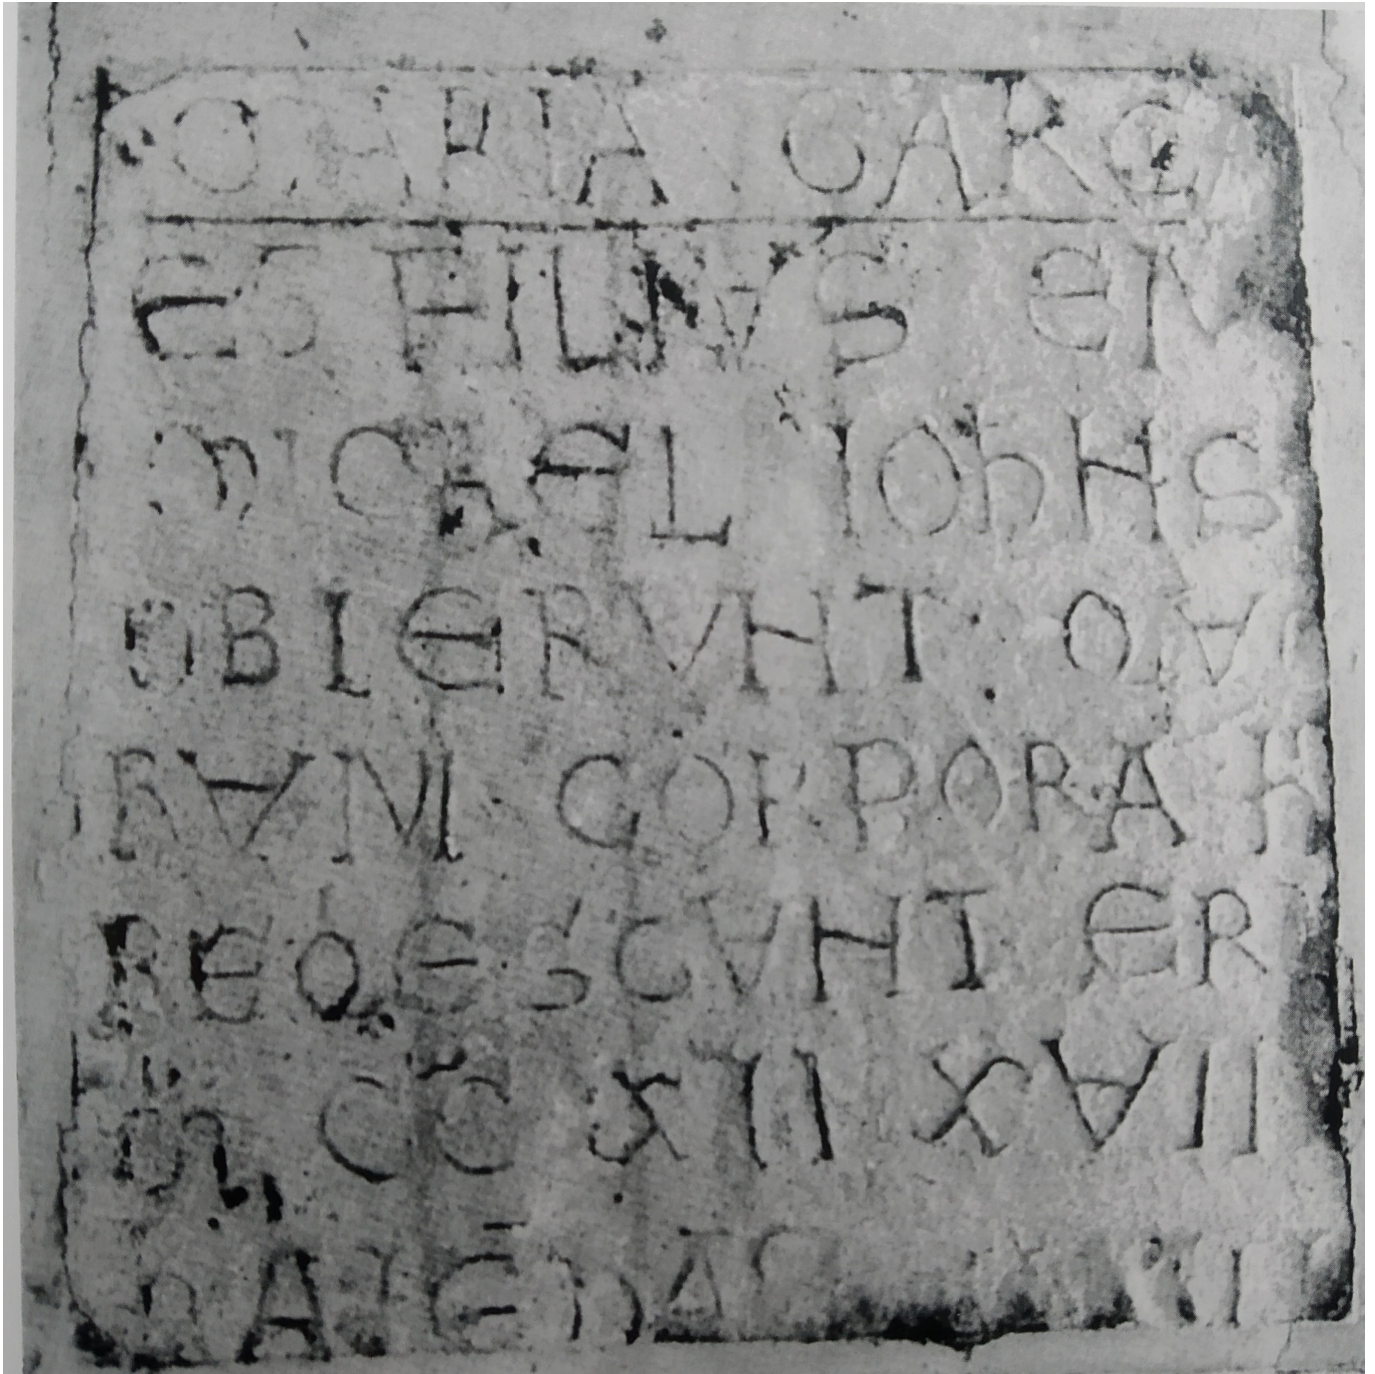 MARIA GARC
ES FILIVS EIV
MICHAEL IOHNS
OBIERVNT QVO
RVM CORPORA H
REQESCVNT ER
M CC XII XVII
KALENDAS